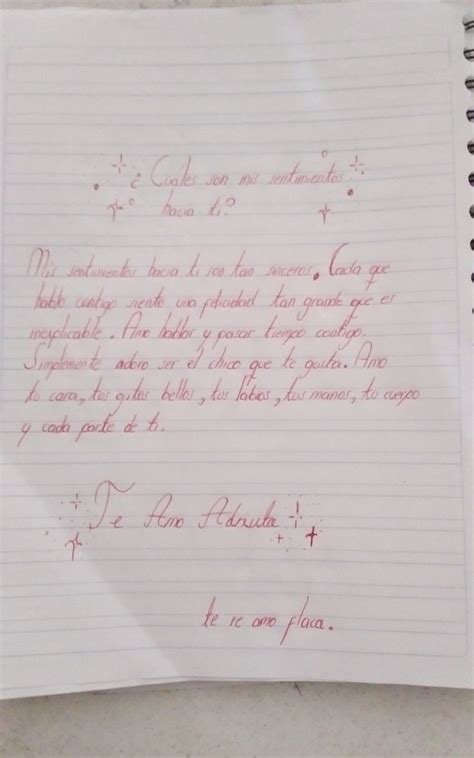 ¿Cuales son mis sentimientos
hacia ti?
Mis sentimientos hacia ti son tan sinceros. Cada que
hablo contigo siento una felicidad tan grande que es
inexplicable. Amo hablar y pasar tiempo contigo.
Simplemente adoro ser el chico que te gusta. Amo
tu cara, tus ojitos bellos, tus labios, tus manos, tu cuerpo
y cada parte de ti.
Te Amo
te re amo flaca.